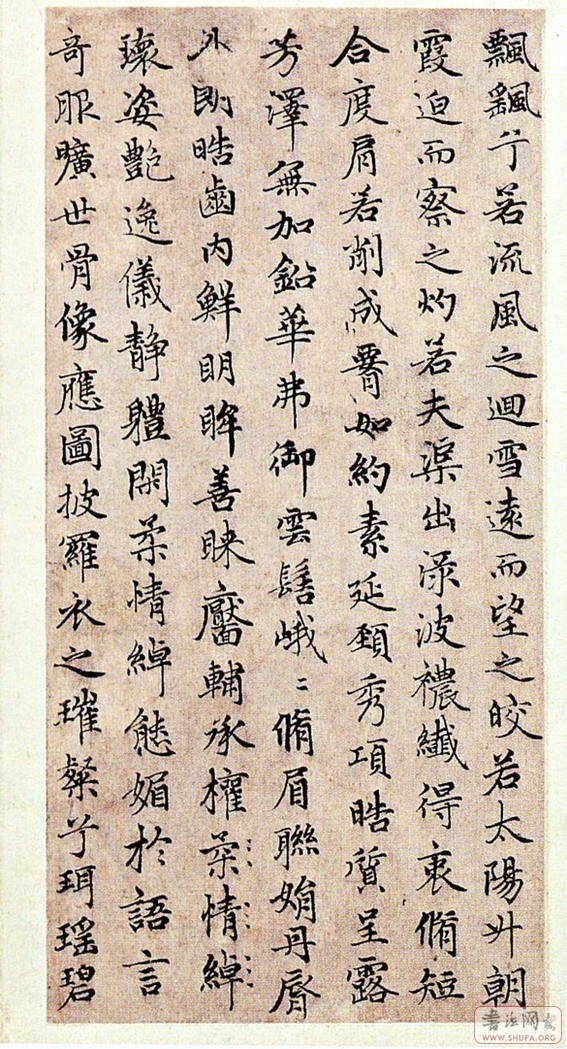 飄颻兮若流風之迴雪遠而望之皎若太陽升朝
霞迫而察之灼若夫渠出淥波襛纖得衷脩短
合度肩若削成腰如約素延頸秀項晧質呈露
芳澤無加鉛華弗御雲髻峨〻脩眉聯娟丹脣
外朗晧齒內鮮明眸善睞靨輔承權柔情綽
瓌姿艷逸儀靜體閑柔情綽態媚於語言
奇服曠世骨像應圖披羅衣之璀粲兮珥瑤碧
WWW.SHUFA.ORG